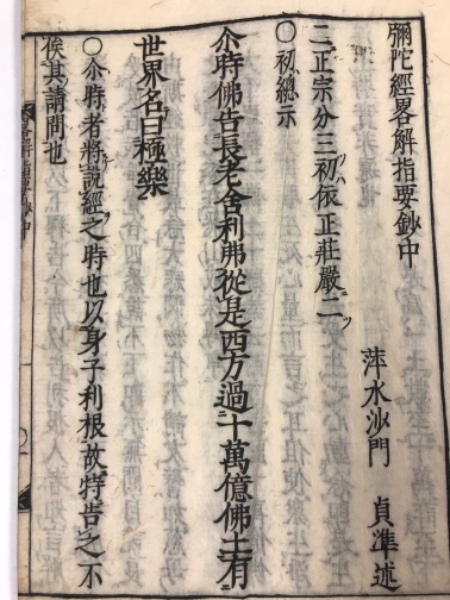 彌陀經畧解指要鈔中
萍水沙門 貞準述
二正宗分三初依正莊嚴二
○初總示
尒時佛告長老舍利弗從是西方過十萬億佛土有
世界名曰極樂
○尒時者將說經之時也以身子利根故特告之不
俟其請問也